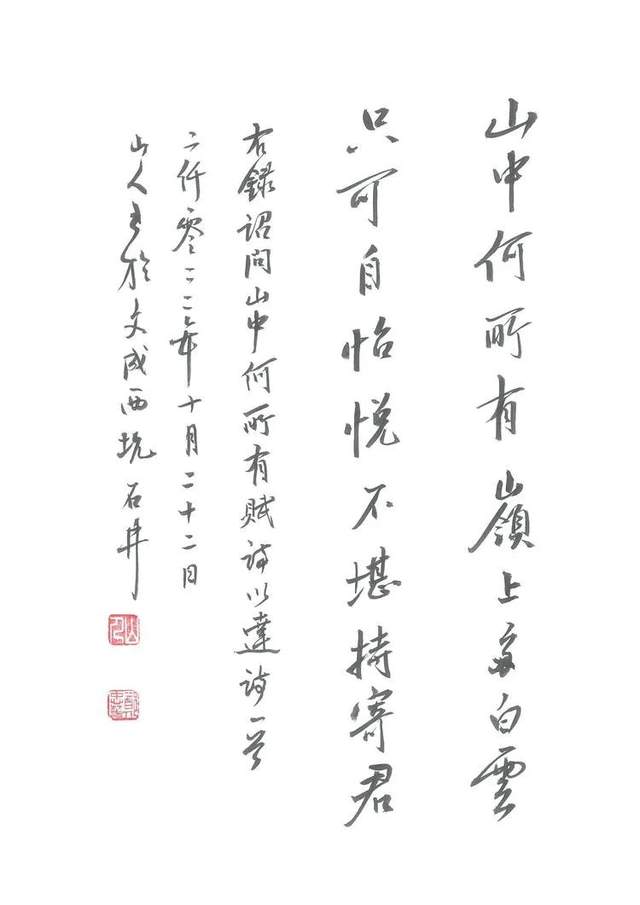 山中何所有嶺上多白雲
只可自怡悦不堪持寄君
右錄詔問山中何所有賦詩以達詩一首
二仟零二二年十月二十二日
山人書於文成西坑石井
山人